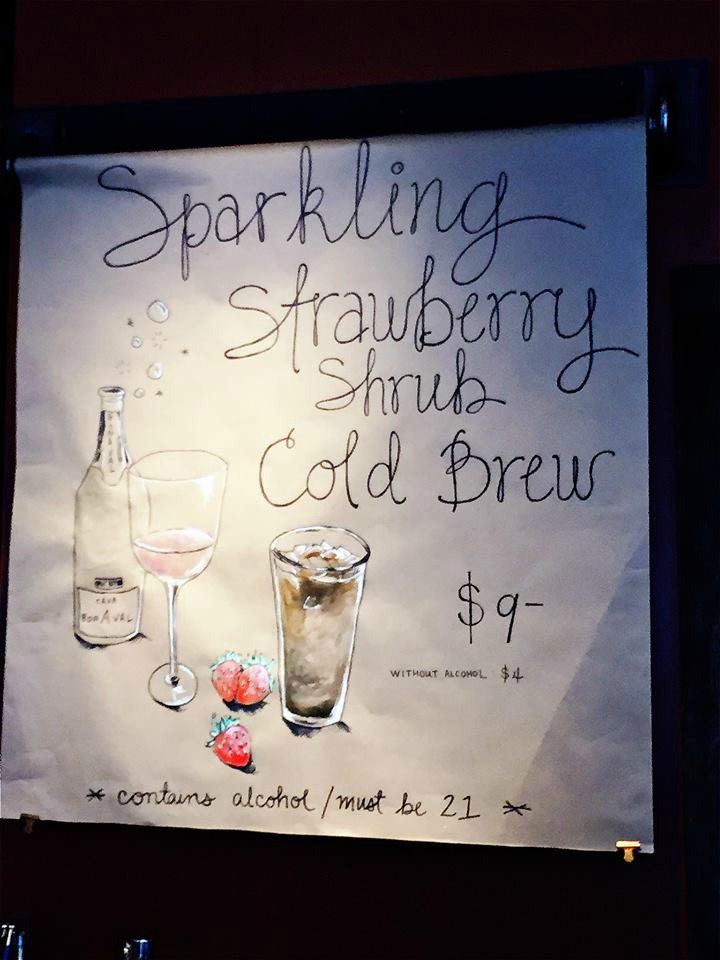 Sparkling
Strawberry
Shrub
Cold Brew
CAVA
BONAVAL
$9-
WITHOUT ALCOHOL $4
* contains alcohol / must be 21 *